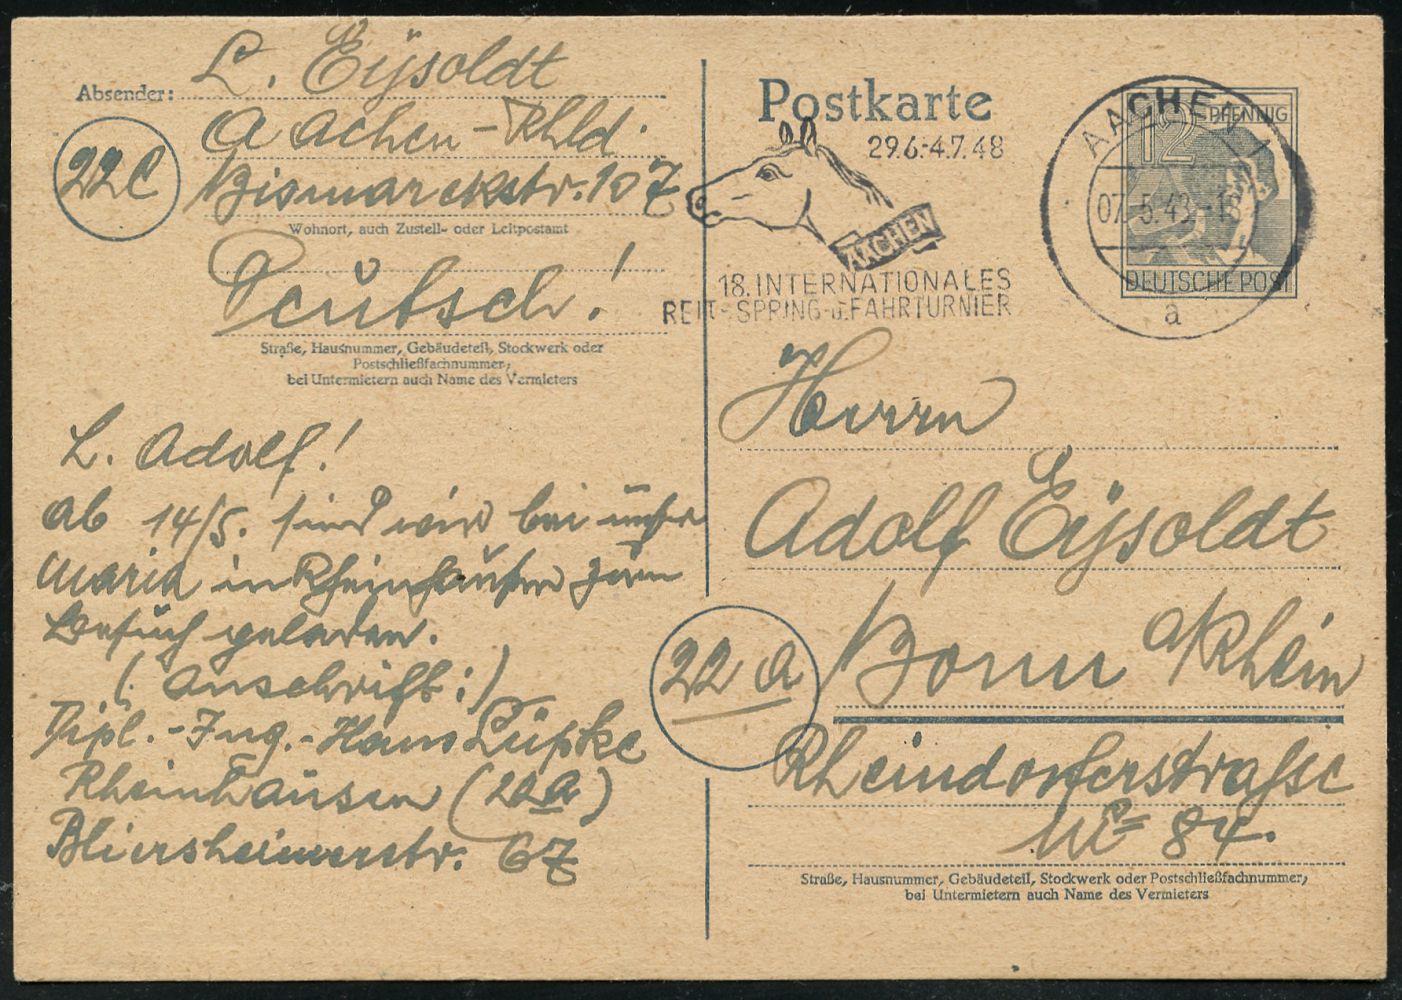 Absender: L. Eÿsoldt
Aachen-Rhld.
22C
Bismarckstr. 107
Wohnort, auch Zustell- oder Leitpostamt
Deutsch!
Straße, Hausnummer, Gebäudeteil, Stockwerk oder
Postschließfachnummer,
bei Untermietern auch Name des Vermieters
L. Adolf!
Ab 14/5. sind wir bei unser
Maria in Rheinhausen zum
Besuch geladen.
(Anschrift:)
Dipl.-Ing.-Hans Lüpke
Rheinhausen (22a)
Bliersheimerstr. 67
Postkarte
29.6.-4.7.48
AACHEN
18. INTERNATIONALES
REIT-, SPRING- u. FAHRTURNIER
AACHEN 1
07.5.48.-18
a
12 PFENNIG
DEUTSCHE POST
Herrn
Adolf Eÿsoldt
22a
Bonn a/Rhein
Rheindorferstraße
No 84.
Straße, Hausnummer, Gebäudeteil, Stockwerk oder Postschließfachnummer,
bei Untermietern auch Name des Vermieters